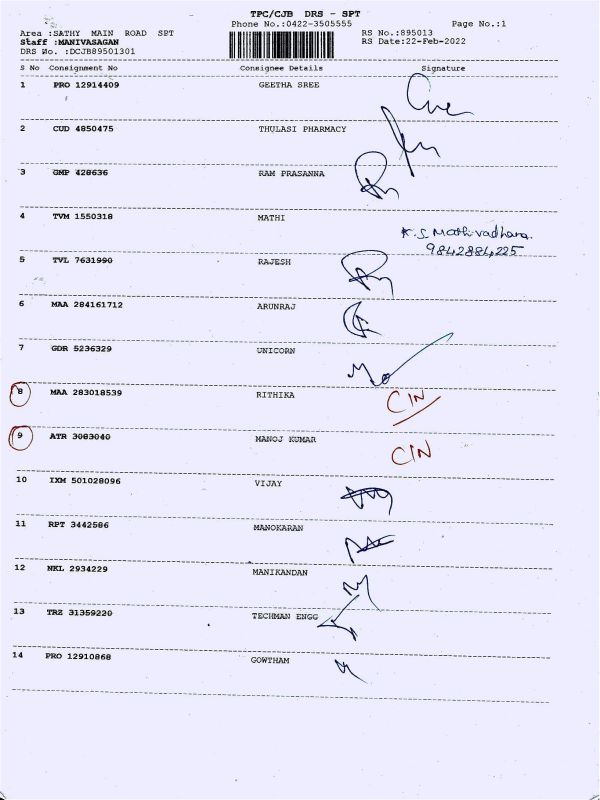 TPC/CJB DRS - SPT
Phone No.:0422-3505555 Page No.:1
Area :SATHY MAIN ROAD SPT RS No.:895013
Staff :MANIVASAGAN RS Date:22-Feb-2022
DRS No. :DCJB89501301
S No Consignment No Consignee Details Signature
1 PRO 12914409 GEETHA SREE
2 CUD 4850475 THULASI PHARMACY
3 GMP 428636 RAM PRASANNA
4 TVM 1550318 MATHI
K.S Mathivadhana.
9842884225
5 TVL 7631990 RAJESH
6 MAA 284161712 ARUNRAJ
7 GDR 5236329 UNICORN
8 MAA 283018539 RITHIKA CIN
9 ATR 3083040 MANOJ KUMAR CIN
10 IXM 501028096 VIJAY
11 RPT 3442586 MANOKARAN
12 NKL 2934229 MANIKANDAN
13 TRZ 31359220 TECHMAN ENGG
14 PRO 12910868 GOWTHAM